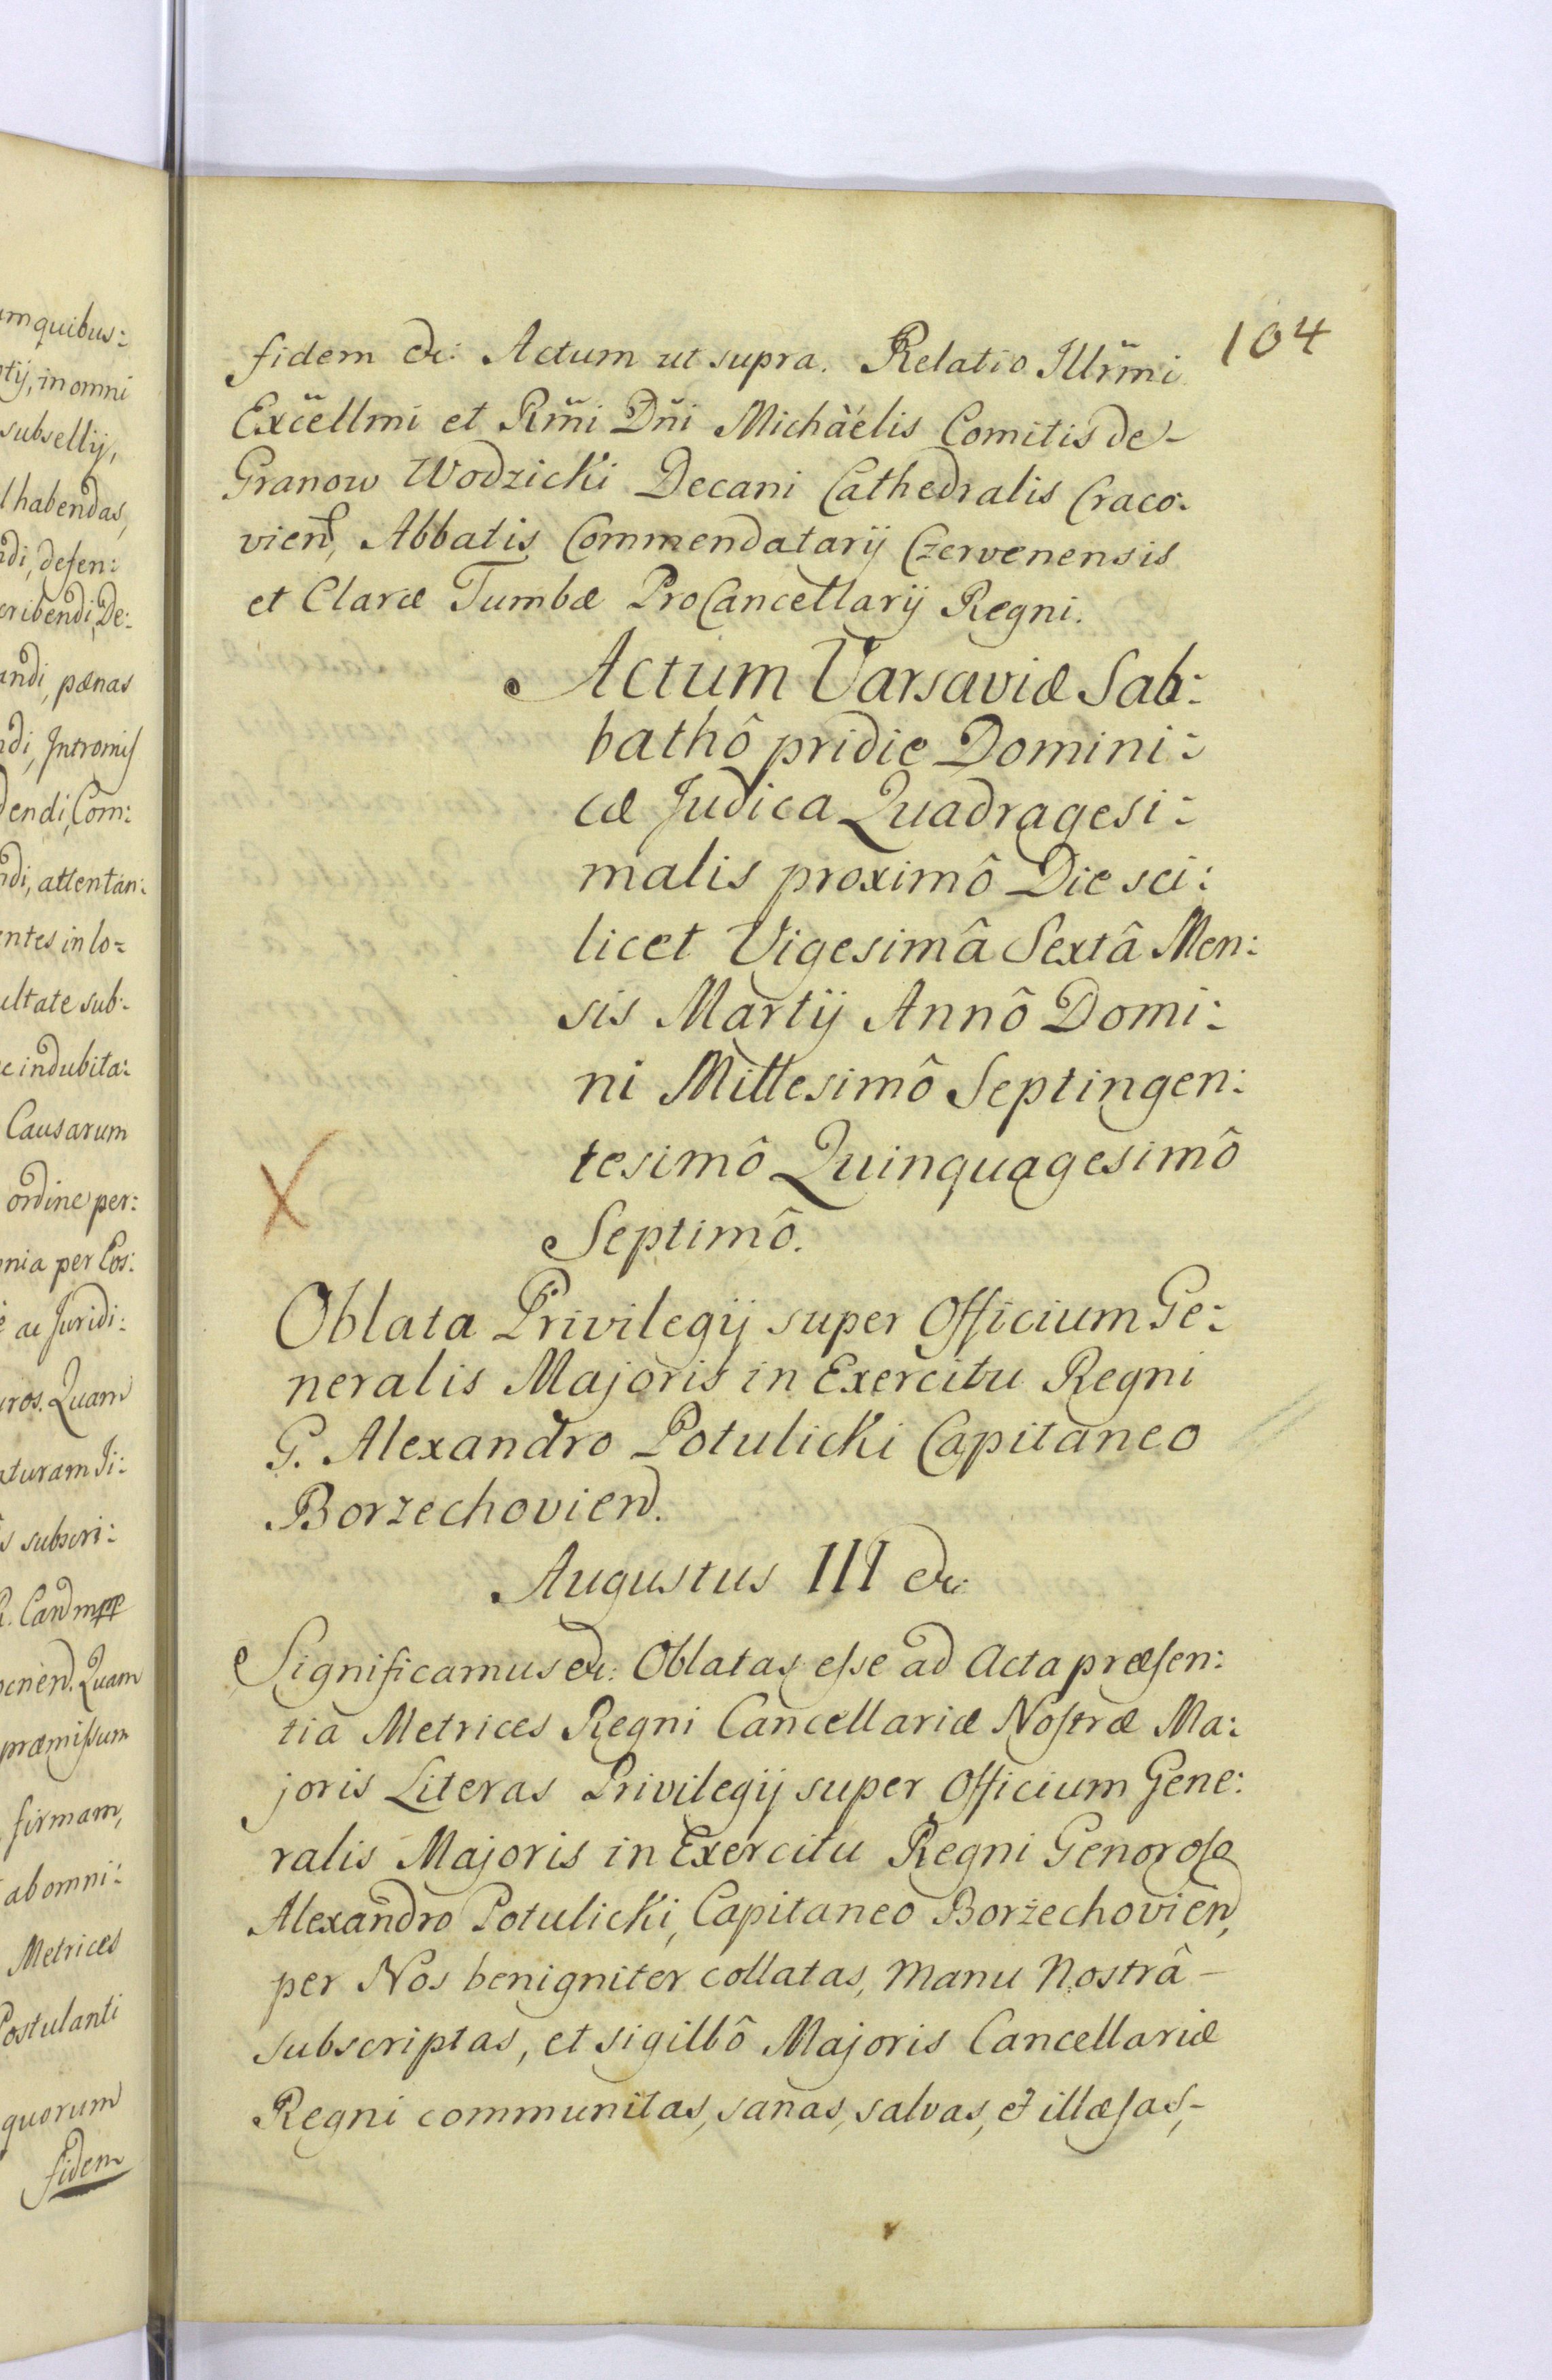 mquibus:
tij, in omni
subsellij,
habendas,
di, defen:
cribendi, De:
andi, pænas
di, Intromis
dendi, Com:
di, attentan:
entes in lo=
ultate sub:
e indubita:
Causarum
ordine per:
nia per Eos:
ac Juridi:
uros. Quam
turam Ji:
s subscri:
Quam
præmissum
firmam,
ab omni:
Metrices
Postulanti
quorum
fidem
104
fidem &c: Actum ut supra. Relatio Illrm̃i
Exc̃ellmi et Rm̃i Dñi Michaëlis Comitis de-
Granow Wodzicki Decani Cathedralis Craco:
vien, Abbatis Commendatarij Czervenensis
et Claræ Tumbæ ProCancellarij Regni.
Actum Varsaviæ Sab:
bathô pridie Domini:
cæ Judica Quadragesi:
malis proximô Die sci:
licet Vigesimâ Sextâ Men:
sis Martij Annô Domi:
ni Millesimô Septingen:
tesimô Quinquagesimô
Septimô.
Oblata Privilegij super Officium Ge:
neralis Majoris in Exercitu Regni
G. Alexandro Potulicki Capitaneo
Borzechovien.
Augustus III &c:
Significamus &c: Oblatas esse ad Acta præsen:
tia Metrices Regni Cancellariæ Nostræ Ma:
joris Literas Privilegij super Officium Gene:
ralis Majoris in Exercitu Regni Genoroso
Alexandro Potulicki, Capitaneo Borżechovien,
per Nos benigniter collatas, manu Nostrâ -
subscriptas, et sigillô Majoris Cancellariæ
Regni communitas, sanas, salvas, et illæsas,-